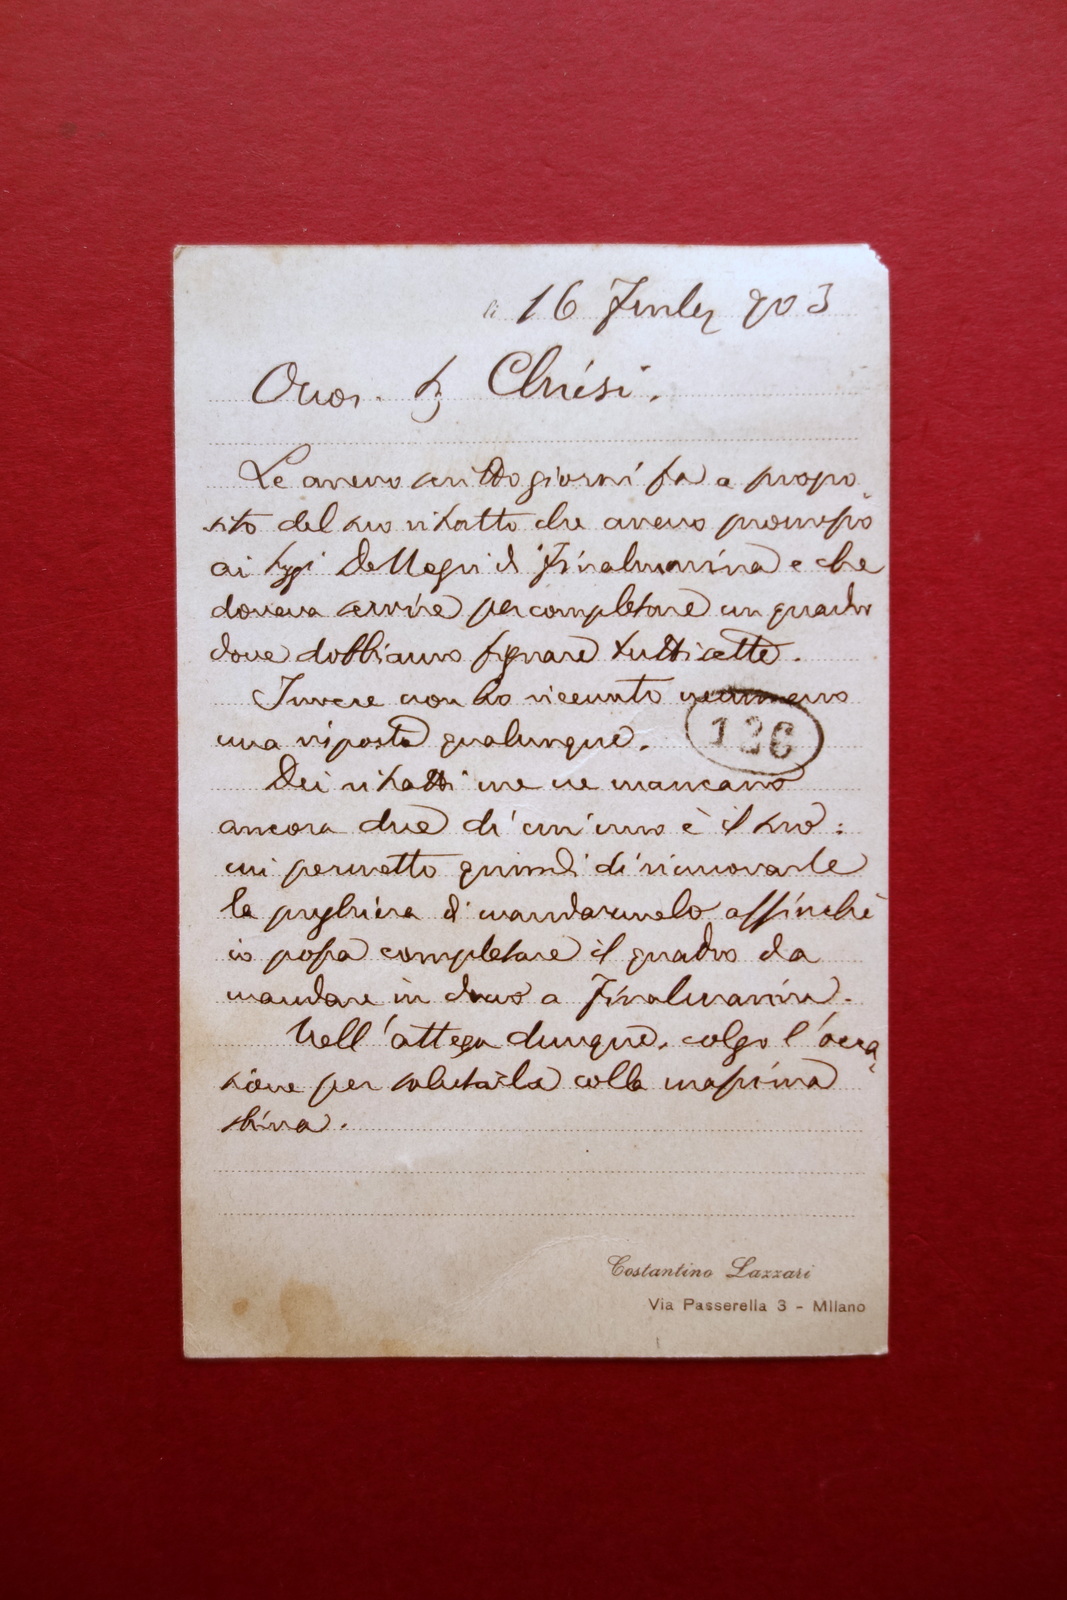 li 16 903
Onor. Chiesi.
Le avevo scritto giorni fa a propo
sito del suo ritratto che avevo promesso
ai Dellegri di Finalmarina e che
doveva servire per completare un quadro
dove dobbiamo figurare tutti sette.
Invece non ho ricevuto nemmeno
una risposta qualunque.
126
Dei ritratti me ne mancano
ancora due di cui uno è il suo:
mi permetto quindi di rinnovarle
la preghiera di mandarmelo affinchè
io possa completare il quadro da
mandare in dono a Finalmarina.
Nell'attesa dunque, colgo l'occa
sione per salutarla colla massima
stima.
Costantino Lazzari
Via Passerella 3 - Milano